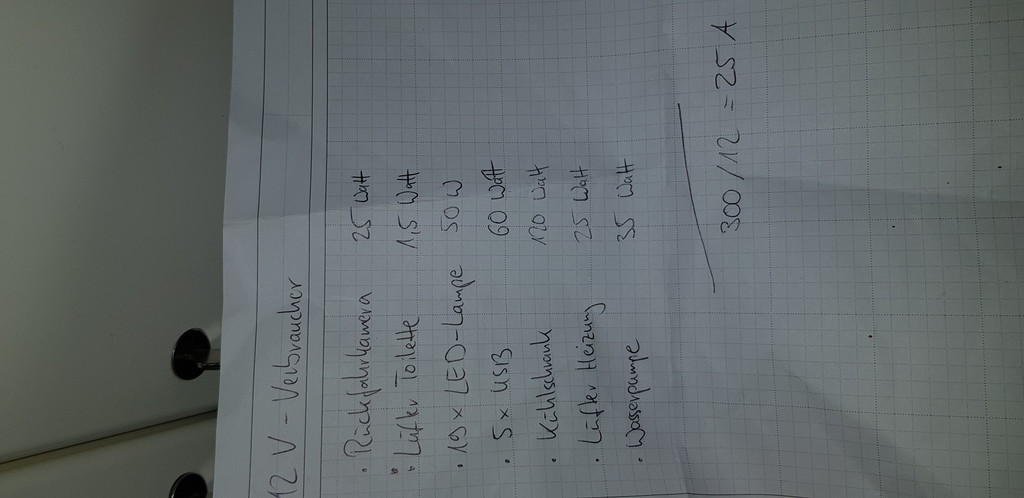 12 V - Verbraucher
· Rückfahrkamera 25 Watt
· Lüfter Toilette 1,5 Watt
· 19x LED-Lampe 50 W
· 5x USB 60 Watt
· Kühlschrank 120 Watt
· Lüfter Heizung 25 Watt
· Wasserpumpe 35 Watt
300/12 = 25 A